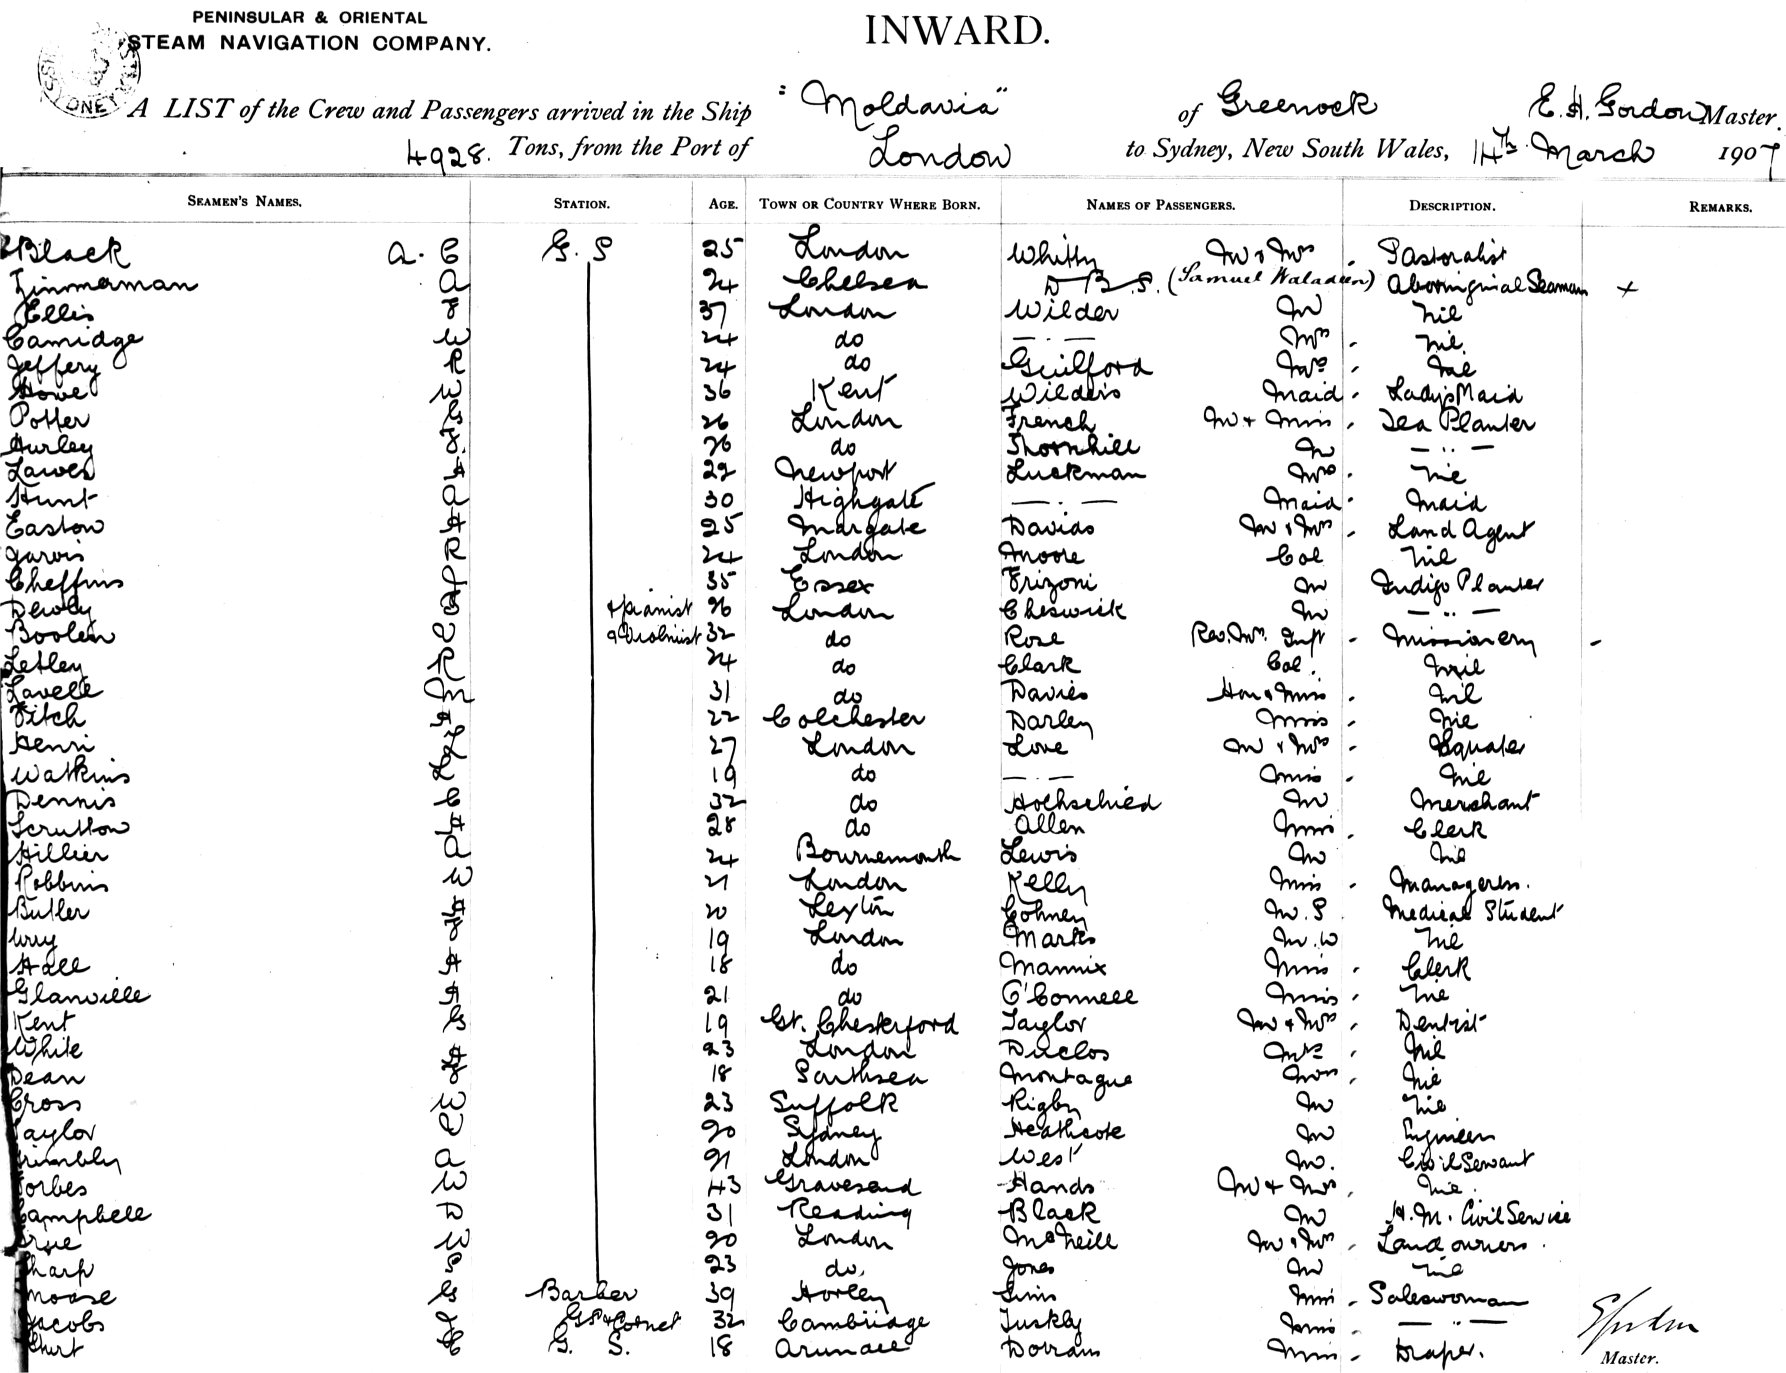 PENINSULAR & ORIENTAL
STEAM NAVIGATION COMPANY.
INWARD.
SYDNEY
A LIST of the Crew and Passengers arrived in the Ship "Moldavia" of Greenock E. H. Gordon Master.
4928. Tons, from the Port of London to Sydney, New South Wales, 14th March 1907
SEAMEN'S NAMES. STATION. AGE. TOWN OR COUNTRY WHERE BORN. NAMES OF PASSENGERS. DESCRIPTION. REMARKS.
Black A. C G. S 25 London Whitty Mr & Mrs . Pastoralist
Zimmerman A 24 Chelsea D B. S. (Samuel) Aboriginial Seaman +
Ellis F 37 London Wilder Mr Nil
Camidge W 24 do —·— Mrs . Nil
Jeffery R 24 do Guilford Mrs . Nil
Howe W 36 Kent Wilder's Maid . Lady's Maid
Potter G 26 London French Mr & Miss . Tea Planter
Hurley F. 26 do Thornhill Mr — ·· —
Lawes H 22 Newport Luckman Mrs . Nil
Hunt A 30 Highgate —·— Maid . Maid
Easton H 25 Margate Davids Mr & Mrs . Land Agent
Jarvis R 24 London Moore Col Nil
Cheffins 35 Essex Frizoni Mr Indigo Planter
Dewby & pianist 26 London Cheswick Mr — ·· —
Boolen C & Violinist 32 do Rose Rev. Mr. - Missionery -
Letley R 24 do Clark Col. Nil
Lavelle M 31 do Davies Hon & Miss . Nil
Fitch H 22 Colchester Darley Miss . Nil
Henri 27 London Love Mr & Mrs . Squater
Watkins 19 do —·— Miss . Nil
Dennis C 32 do Hochschied Mr Merchant
Scrutton H 28 do Allen Miss . Clerk
Hillier A 24 Bournemouth Lewis Mr Nil
Robbins W 21 London Kelly Miss . Manageress.
Butler H 20 Leyton Cohney M. S. Medical Student
Wry F 19 London Marks M. W Nil
Hall H 18 do Mannix Miss . Clerk
Glanville H 21 do O'Connell Miss . Nil
Kent G 19 Gt. Chesterford Taylor Mr & Mrs . Dentist
White H 23 London Duclos Mrs . Nil
Dean F 18 Southsea Montague Mrs . Nil
Cross W 23 Suffolk Rigby Mr Nil
Taylor C 20 Sydney Heathcote Mr Engineer
A 21 London West Mr. Civil Servant
Forbes W 43 Gravesend Hands Mr & Mrs . Nil.
Campbell D 31 Reading Black Mr H. M. Civil Service
W 20 London McNeill Mr & Mrs . Land owners.
Sharp S 23 do. Jones Mr Nil
Moose G Barber 39 Horley Sims Miss . Saleswoman
Jacobs J GS & Cornet 32 Cambridge Tuskly Miss . — ·· —
C G. S. 18 Arundel Dorrans Miss . Draper.
Master.